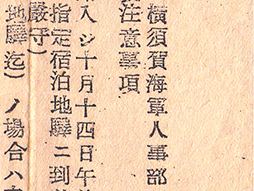 横須賀海軍人事部
注意事項
入ジ十月十四日午
指定宿泊地驛ニ到
嚴守）
地驛迄）ノ場合ハ